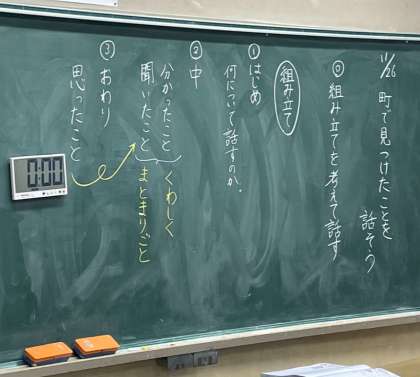 11/26 町で見つけたことを
話そう
◎ 組み立てを考えて話す
組み立て
① はじめ
何について話すのか。
② 中
分かったこと くわしく
聞いたこと まとまりごと
③ おわり
思ったこと
0:00